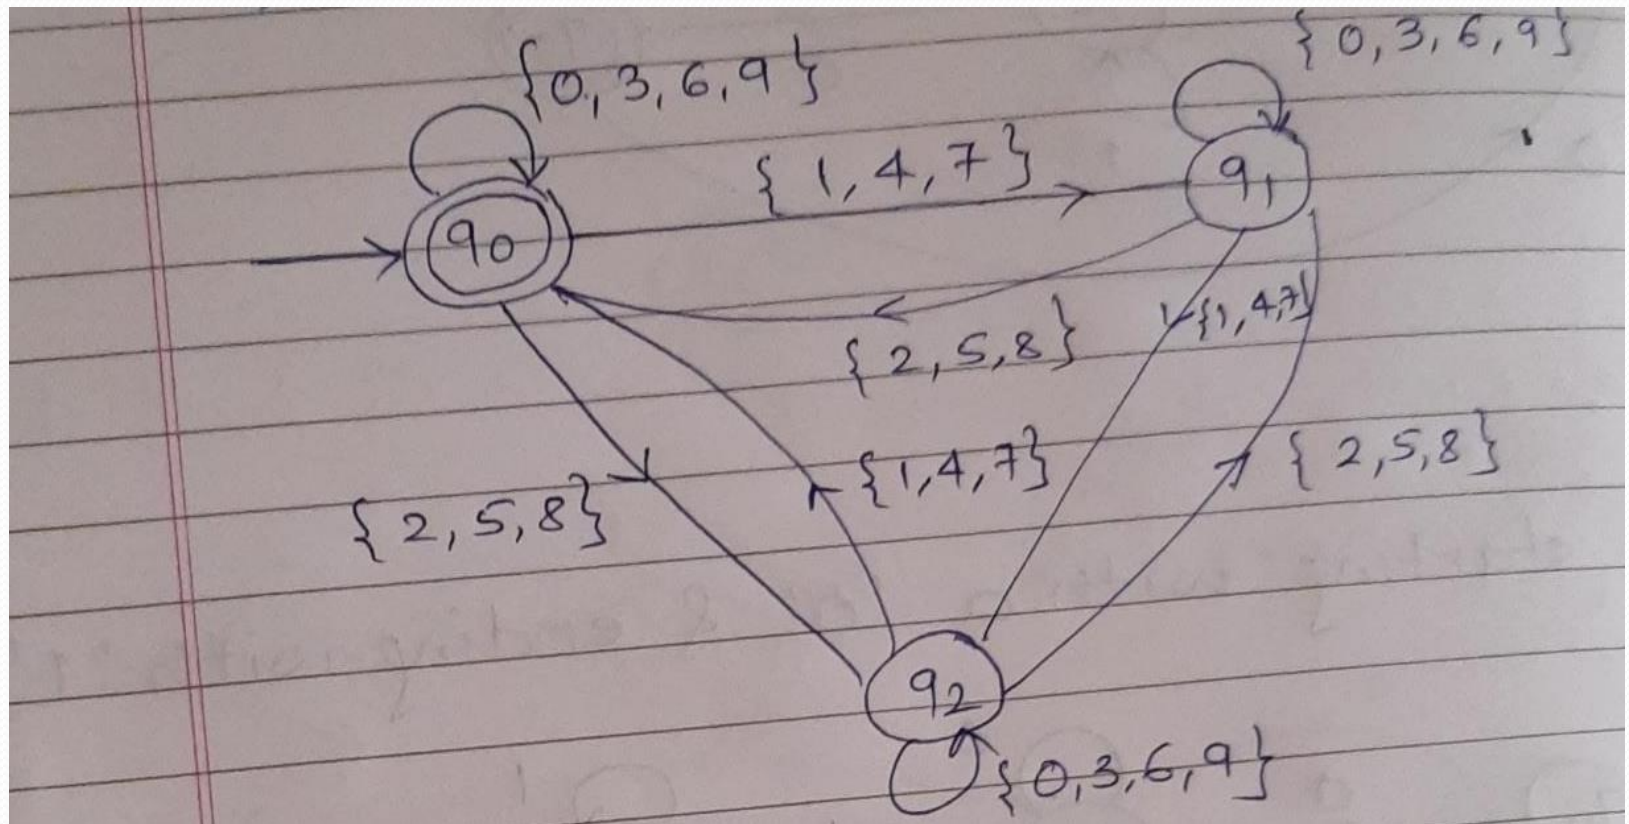 {0, 3, 6, 9}
{0, 3, 6, 9}
{1, 4, 7}
q1
q0
{1, 4, 7}
{2, 5, 8}
{1, 4, 7}
{2, 5, 8}
{2, 5, 8}
q2
{0, 3, 6, 9}